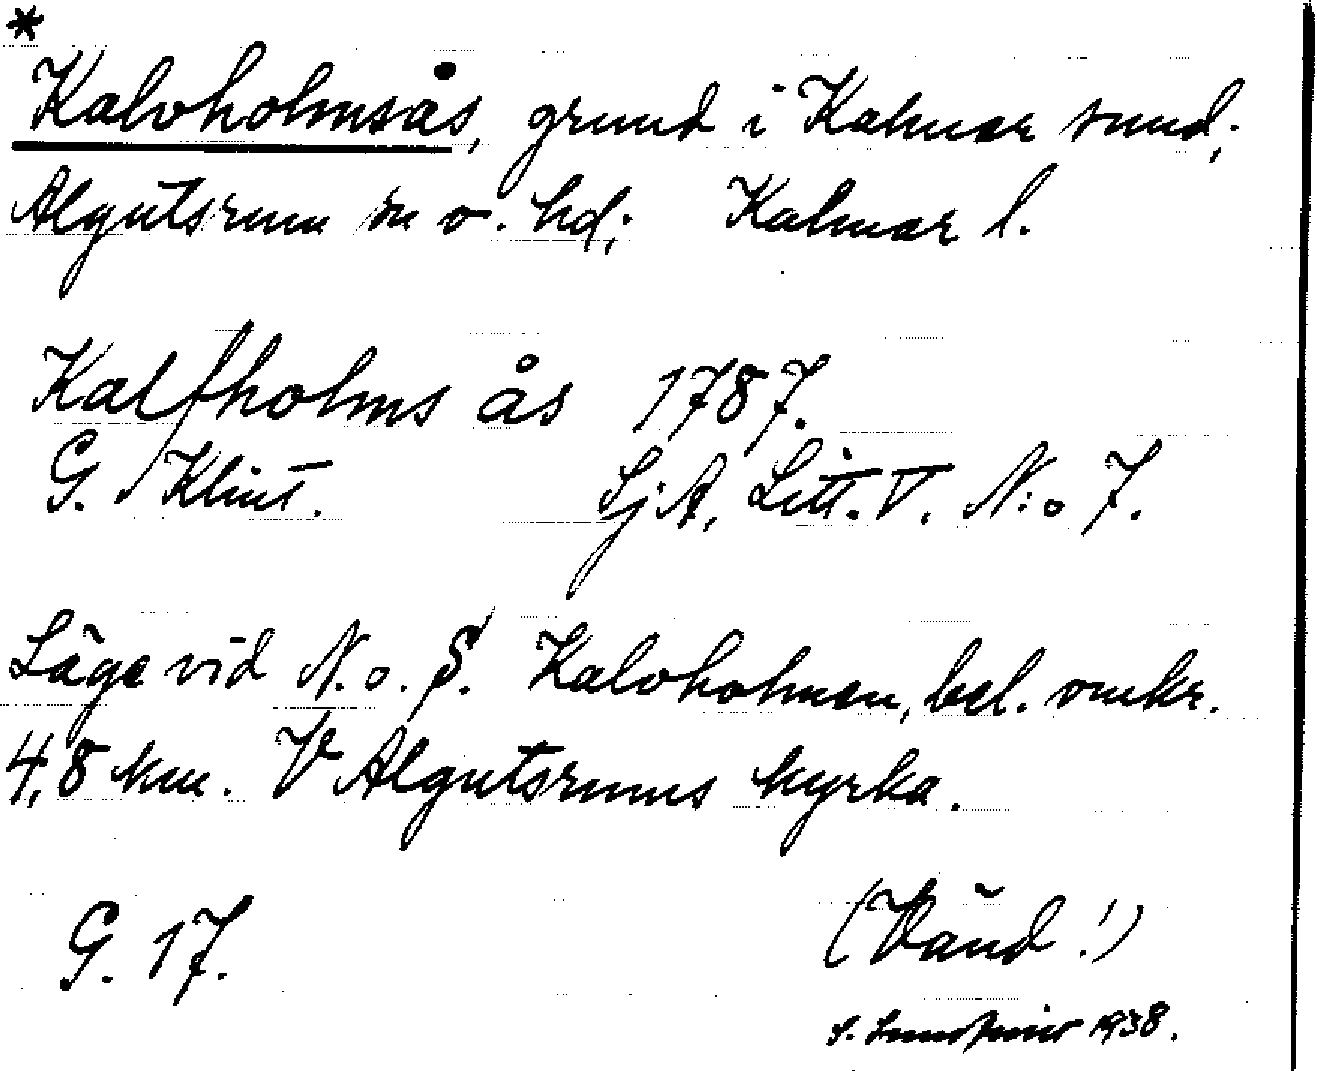 *
Kalvholmsås, grund i Kalmar sund;
Algutsrum sn o. hd; Kalmar l.
Kalfholms ås 1787.
G. Klint. SjA, Litt. V. N:o 7.
Läge vid N. o. S. Kalvholmen, bel. omkr.
4,8 km. V Algutsrums kyrka.
G. 17.
(Vänd!)
S. 1938.